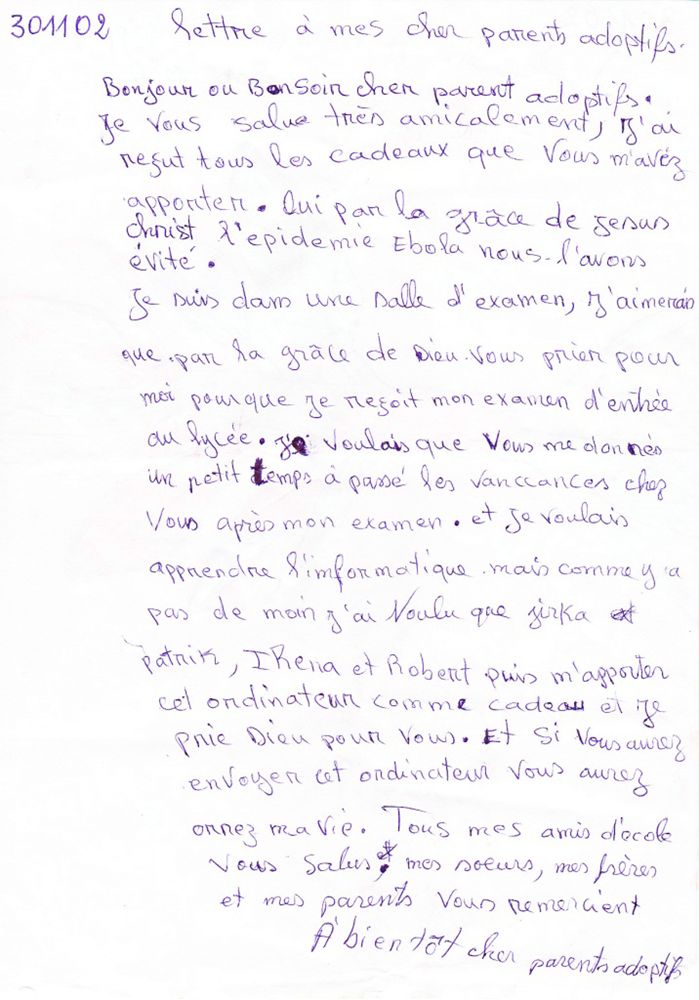 301102 lettre à mes cher parents adoptifs.
Bonjour ou Bonsoir cher parent adoptifs.
Je vous salue très amicalement, j'ai
reçut tous les cadeaux que vous m'avéz
apporter. Qui par la grâce de jesus
christ l'epidemie Ebola nous l'avons
évité.
Je suis dans une salle d'examen, j'aimerais
que par la grâce de Dieu vous prier pour
moi pour que je reçoit mon examen d'entrée
au lycée. je voulais que vous me donnés
un petit temps à passé les vanccances chez
vous après mon examen. et je voulais
apprendre l'imformatique mais comme y a
pas de moin j'ai voulu que jirka et
patrik, IRena et Robert puis m'apporter
cet ordinateur comme cadeau et je
prie Dieu pour vous. Et si vous aurez
envoyer cet ordinateur vous aurez
ornez ma vie. Tous mes amis d'ecole
vous salus et mes soeurs, mes frères
et mes parents vous remercient
À bientôt cher parents adoptifs